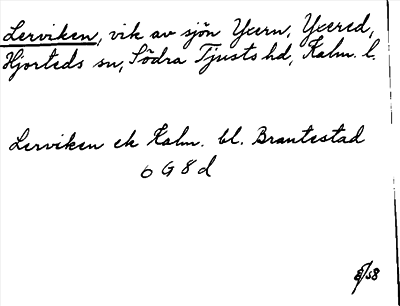 Lerviken, vik av sjön Yxern, Yxered,
Hjorteds sn, Södra Tjusts hd, Kalm. l.
Lerviken ek Kalm. bl. Brantestad
6 G 8 d
8/58